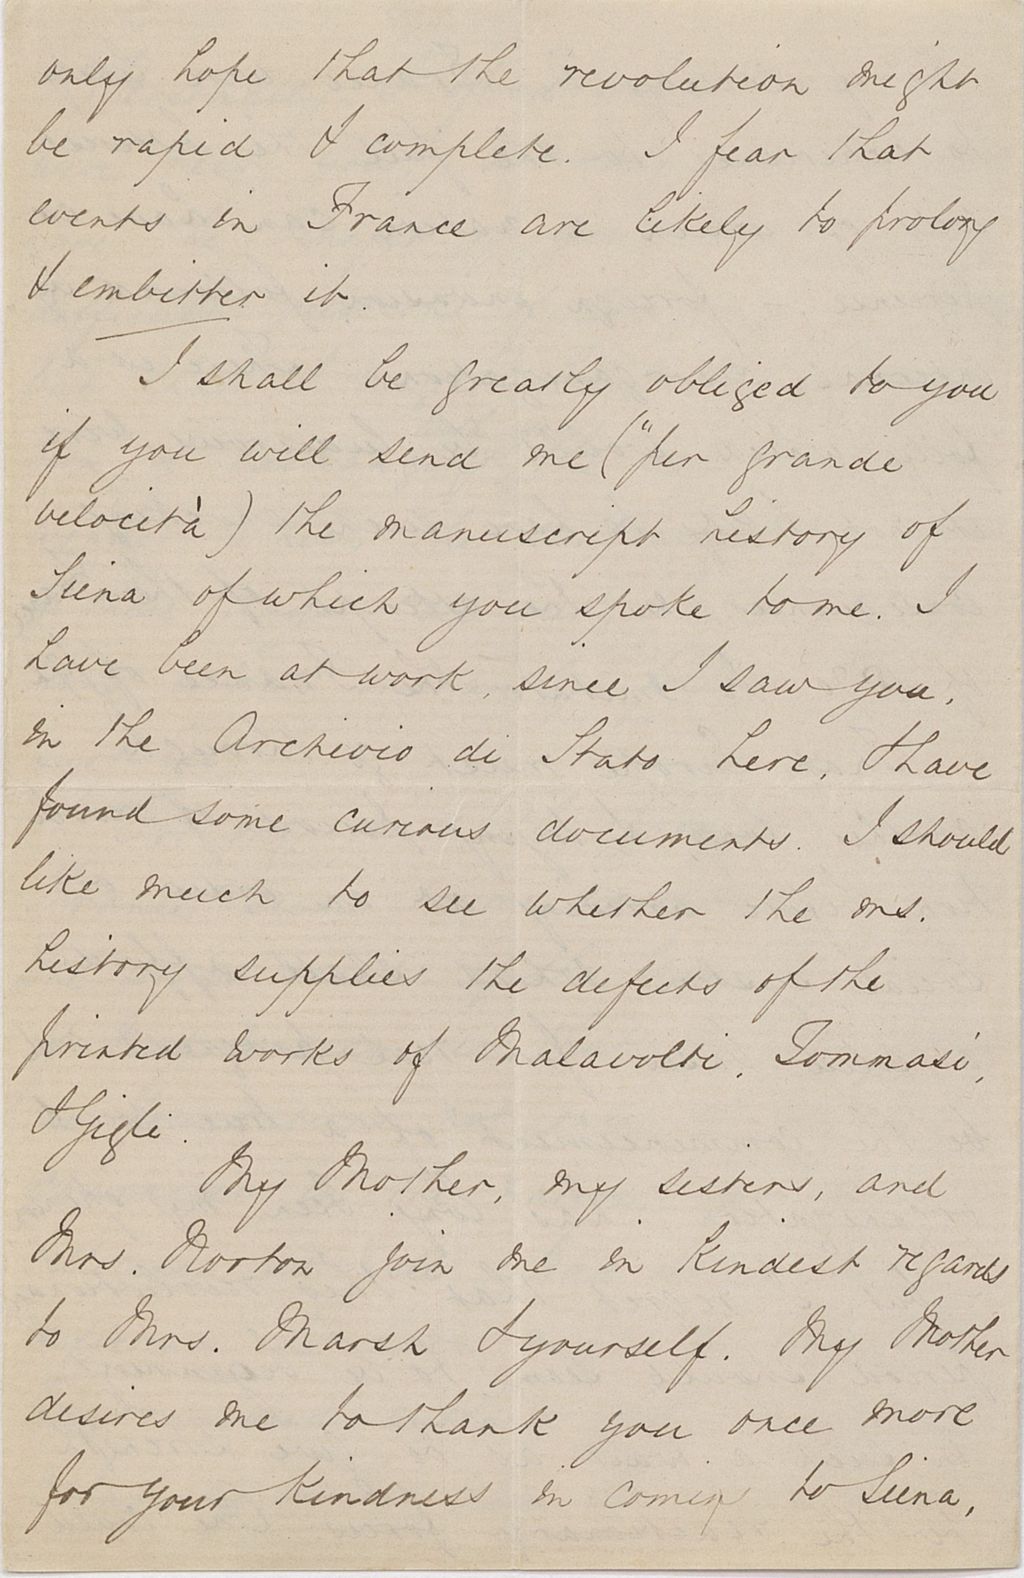 only hope that the revolution might
be rapid & complete. I fear that
events in France are likely to prolong
& embitter it.
I shall be greatly obliged to you
if you will send me ("per grande
velocità) the manuscript history of
Siena of which you spoke to me. I
have been at work, since I saw you,
in the Archivio di Stato here, & have
found some curious documents. I should
like much to see whether the ms.
history supplies the defects of the
printed works of Malavolti, Tommasi,
& Gigli.
My Mother, my sisters, and
Mrs. Norton join me in kindest regards
to Mrs. Marsh & yourself. My Mother
desires me to thank you once more
for your kindness in coming to Siena,